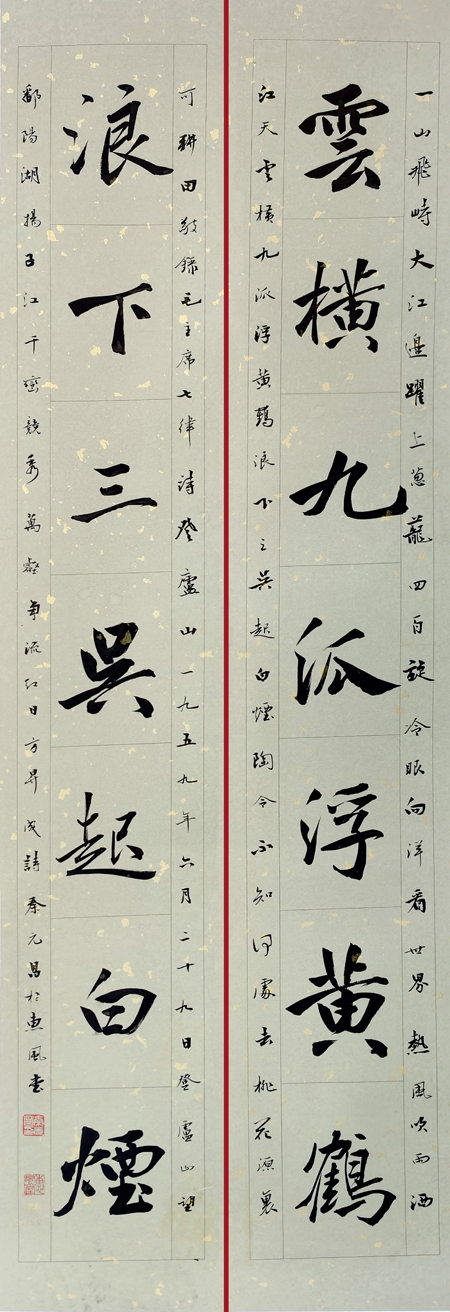 一山飛峙大江邊躍上蔥蘢四百旋冷眼向洋看世界熱風吹雨洒
雲橫九派浮黃鶴
江天雲橫九派浮黃鶴浪下三吳起白煙陶令不知何處去桃花源裏
可耕田敬錄毛主席七律詩登廬山一九五九年六月二十九日登廬山望
浪下三吳起白煙
鄱陽湖揚子江千巒競秀萬壑爭流紅日方昇成詩秦元昌於惠風堂